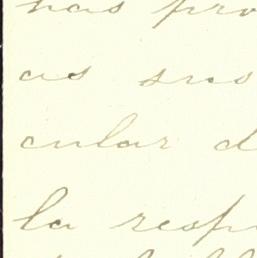 has pro
as sus
cular d
la resp